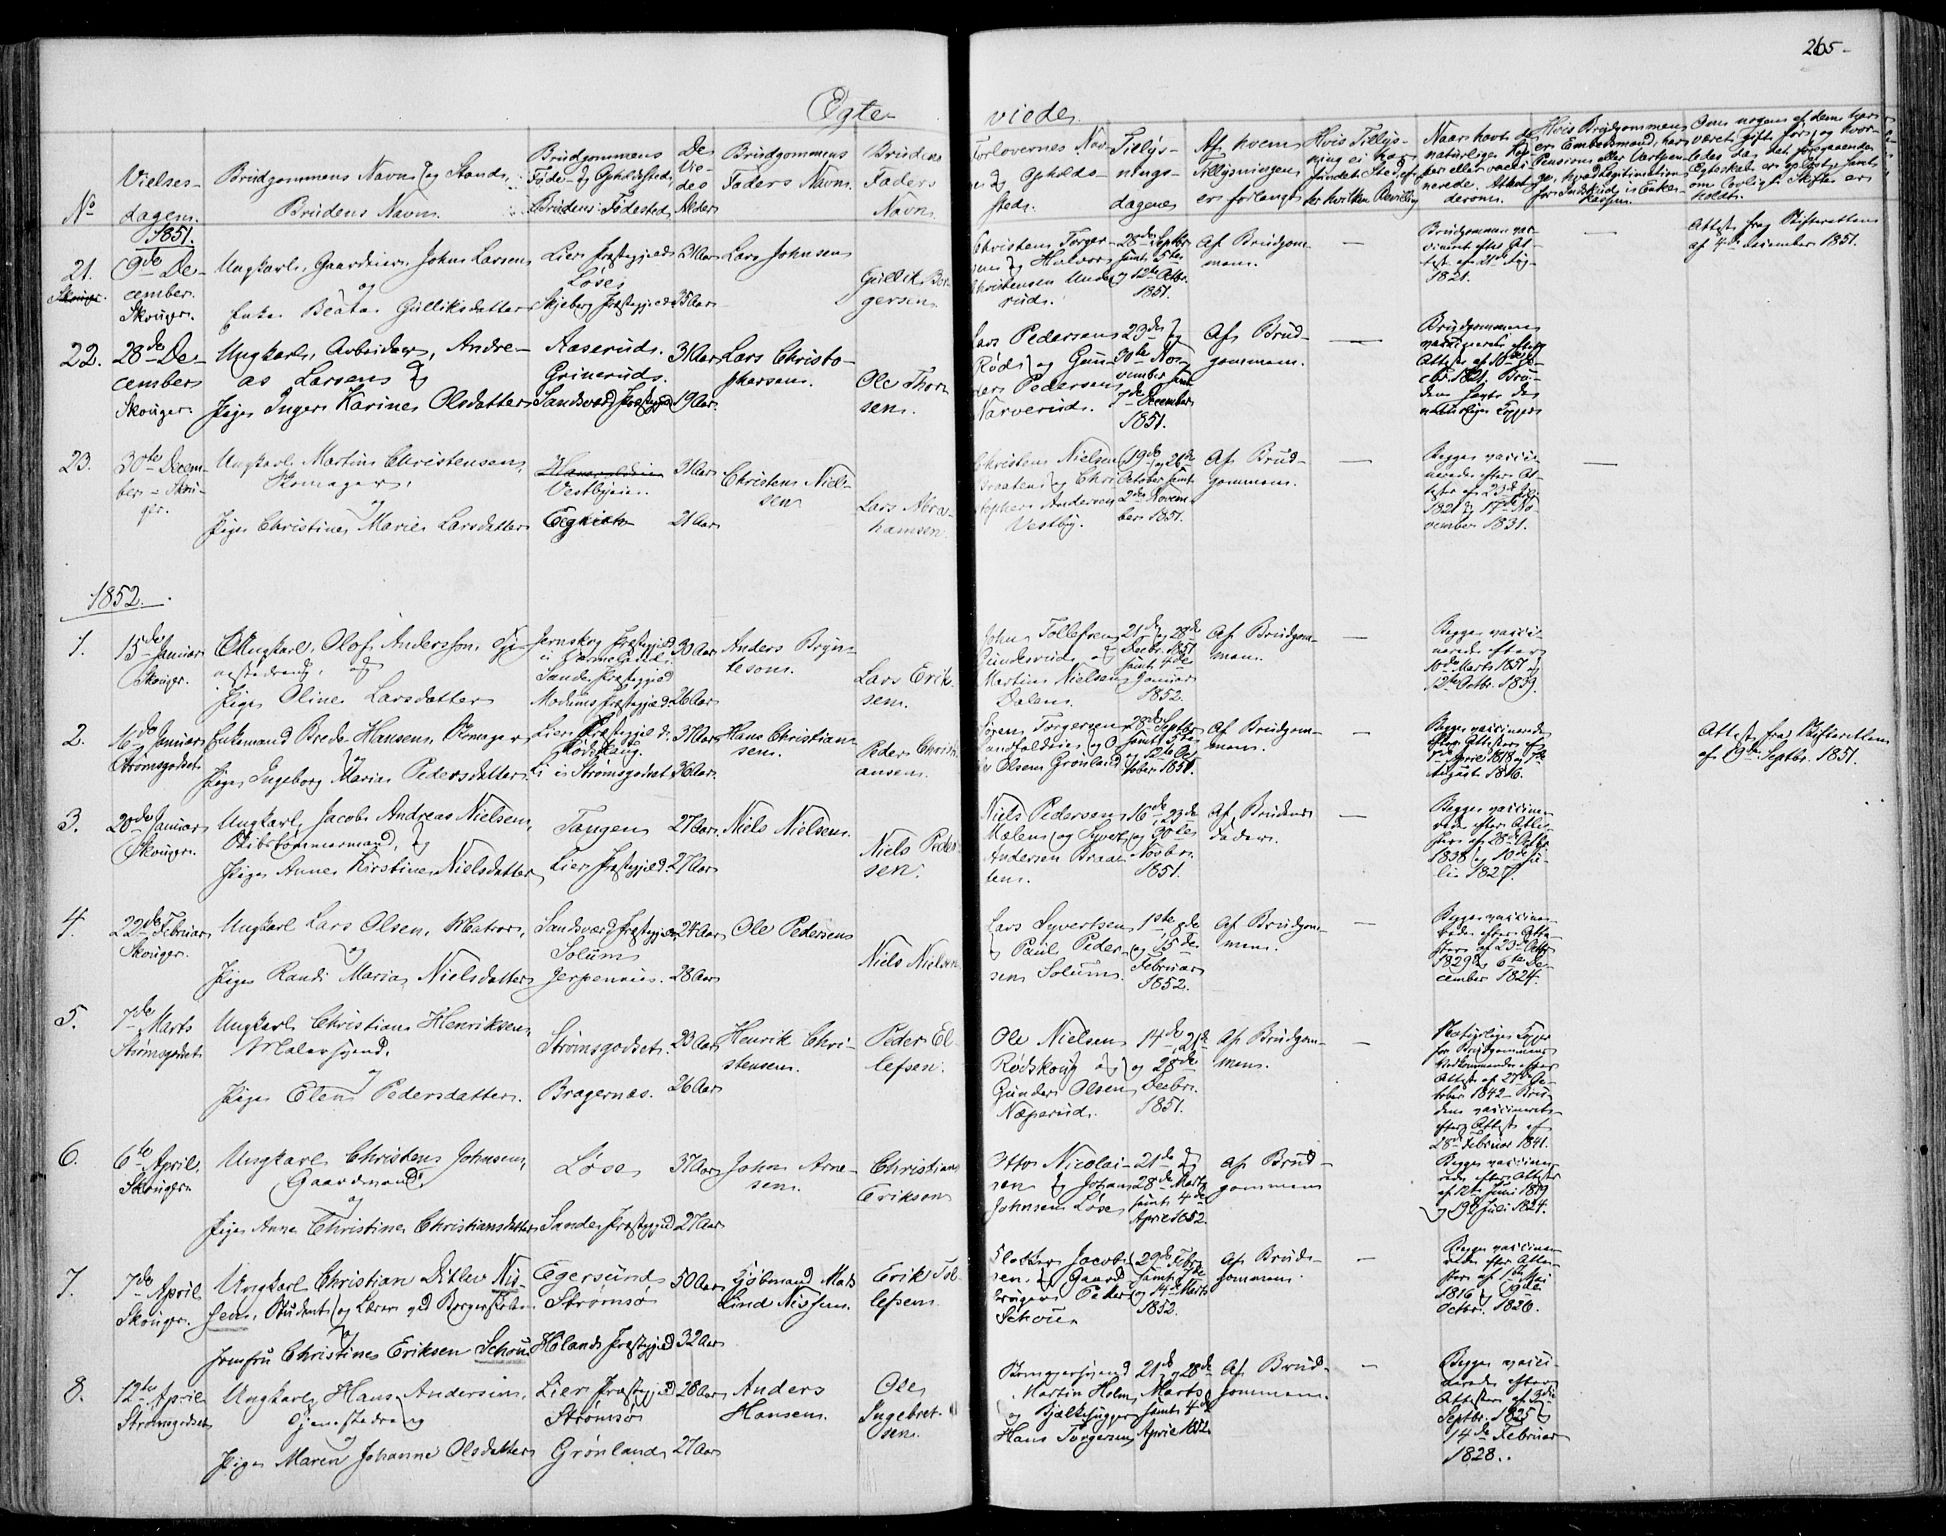 265
Egte- viede
No
Vielses-
dagen.
Brudgommens Navn og Stand.
Brudens Navn.
Brudgommens
Føde- og Opholdssted,
Brudens Fødested
De
Vie-
des
Alder
Brudgommens
Faders Navn.
Brudens
Faders
Navn
Forlovernes Nav-
ne og Opholds-
sted.
Tillys-
nings-
dagene
Af hvem
Tillysningen
er forlangt
Hvis Tillys-
ning ei har
fundet Sted, ef-
ter hvilken Bevilling
1851.
21.
9de De-
cember.
Skouger.
Ungkarl, Gaardeier, John Larsen
og
Enke Beata Gulliksdatter
Lier Præstegjeld
Løse
Skjeberg Præstegjeld
31 Aar
35 Aar
Lars Johnsen
Gullik Bør-
gersen
Christen Torger-
sen og Halvor
Christensen Unde-
rud.
28de Septbr
samt 5te
og 12te Octbr.
1851.
Af Brudgom-
men.
Brudgommen vac-
cineret efter At-
test af 21de Aug
1821.
Attest fra Skifteretten
af 4de December 1851.
22.
28de De-
cember
Skouger.
Ungkarl, Arbeider, Andre-
as Larsen og
Pige Inger Karine Olsdatter
Aaserud.
Grinerud.
Sandsværd Præstegjeld
31 Aar
19 Aar.
Lars Christo-
phersen.
Ole Thor-
sen.
Lars Pedersen
Røds og Gun-
der Pedersen
Narverud.
23de og
30te No-
vember samt
7de December
1851.
Af Brud-
gommen.
23.
30te Decem-
ber - Skou-
ger.
Ungkarl Martin Christensen,
Komager,
og
Pige Christine Marie Larsdatter
Vestbyeie.
Eegkisto
31 Aar
21 Aar
Christen Niel-
sen
Lars Abra-
hamsen.
Christen Nielsen
Braaten og Chri-
stopher Andersen
Vestby.
19de og 26de
October samt
2den Novem-
ber 1851.
Af Brud-
gommen.
Begge vacci-
nerede efter At-
tester af 23de
1821 og 17de No-
vember 1831.
1852.
1.
15de Januar
Skouger.
Ungkarl, Olof Andersson, Ti-
og
Pige Oline Larsdatter
Jernskog Præstegjeld
Sande Præstegjeld
Modums Præstegjeld.
30 Aar
26 Aar
Anders Bryn-
teson.
Lars Erik-
sen.
John Tollefsen
Gunderud og
Martin Nielsen
Dalen.
21de og 28de
Decbr. 1851
samt 4de
Januar
1852.
Af Brudgom-
men.
Begge vacci-
nerede efter
10de Marts 1851 og
12te Octbr. 1839.
2.
16de Januar
Strømsgodset.
Enkemand Brede Hansen, Komager
og
Pige Ingeborg Marie Pedersdatter
Lier Præstegjeld.
Rødskoug.
Li i Strømsgodset
37 Aar
36 Aar.
Hans Christian-
sen.
Peder Christi-
ansen.
Søren Torgersen
Landfaldøie og O-
le Olsen Grønland
28de Septbr
samt 5te
og 12te Oc-
tober 1851.
Af Brudgom-
men.
Begge vaccinerede
efter Attester af
1ste April 1818 og 7de
August 1816.
Attest fra Skifteretten
af 19de Septbr. 1851.
3.
20de Januar
Skouger.
Ungkarl, Jacob Andreas Nielsen,
Skibstømmermand, og
Pige Anne Kirstine Nielsdatter
Tangen
Lier Præstegjeld.
27 Aar.
27 Aar
Niels Nielsen.
Niels Peder-
sen.
Niels Pedersen
Mælen og Syvert
Andersen Braa-
ten.
16de, 23de
og 30te
Novbr.
1851.
Af Brudens
Fader.
Begge vaccine-
rede efter Atte-
ster af 28de Octbr.
1838 og 10de Ju-
li 1827.
4.
22de Februar
Skouger.
Ungkarl Lars Olsen, Matros,
og
Pige Randi Maria Nielsdatter
Sandsværd Præstegjeld
Solum
Jerpenæs.
24 Aar
28 Aar
Ole Pedersen
Niels Nielsen
Lars Syvertsen
og Paul Peder-
sen Solum.
1ste, 8de
og 15de
Februar
1852.
Af Brudgom-
men.
Begge vaccine-
rede efter Atte-
ster af 23de Octbr.
1829 og 6te De-
cember 1824.
5.
7de Marts
Strømsgodset
Ungkarl Christian Henriksen,
Malersvend.
og
Pige Elen Pedersdatter.
Strømsgodset.
Bragernæs.
23 Aar
26 Aar
Henrik Chri-
stensen.
Peder El-
lefsen.
Ole Nielsen
Rødskoug og
Gunder Olsen
Næperud.
14de, 21de
og 28de
Decbr.
1851.
Af Brudgom-
men.
Naturlige Kopper
for Brudgommens
Vedkommende efter
Attest af 27de Oc-
tober 1842 - Bru-
den vaccineret
efter Attest af
28de Februar 1841.
6.
6te April.
Skouger.
Ungkarl Christen Johnsen,
Gaardmand,
og
Pige Anne Christine Christiansdatter
Løse
Sande Præstegjeld
37 Aar
27 Aar
John Arne-
sen.
Christian
Erikson
Otto Nicolai-
sen og Johan
Johnsen Løse
21de og
28de Marts
samt 4de
April 1852.
Af Brud-
gommen
Begge vaccine-
rede efter Attester
af 12te Juni 1819
og 19de Juli 1824.
7.
7de April
Skouger.
Ungkarl Christian Ditlev Nis-
sen, Student og Lærer ved Borgerskolen
og
Jomfru Christine Eriksen Schou
Egersund
Strømsø
Hølands Præstegjeld
50 Aar
32 Aar
Kjøbmand Mats
Lind Nissen.
Erik Tol-
lefsen.
Jacob-
sen og Gaard-
bruger Peder
Schou
29de Febr
samt 7de
og 14de Marts
1852.
Af Brud-
gommen.
Begge vaccine-
rede efter Atte-
ster af 1ste Mai
1816 og 9de
Octbr. 1820.
8.
12te April
Strømsgodset
Ungkarl Hans Andersen,
og
Pige Maren Johanne Olsdatter
Lier Præstegjeld
Strømsø
Grønland
28 Aar
27 Aar
Anders
Hansen.
Ole
Ingebret-
sen.
Martin Holm
og Bjælkehugger
Hans Torgersen
21de og 28de
Marts
samt 4de
April 1852
Af Brud-
gommen.
Begge vacci-
nerede efter
Attester af 3die
Septbr. 1825 og
14de Februar
1828.